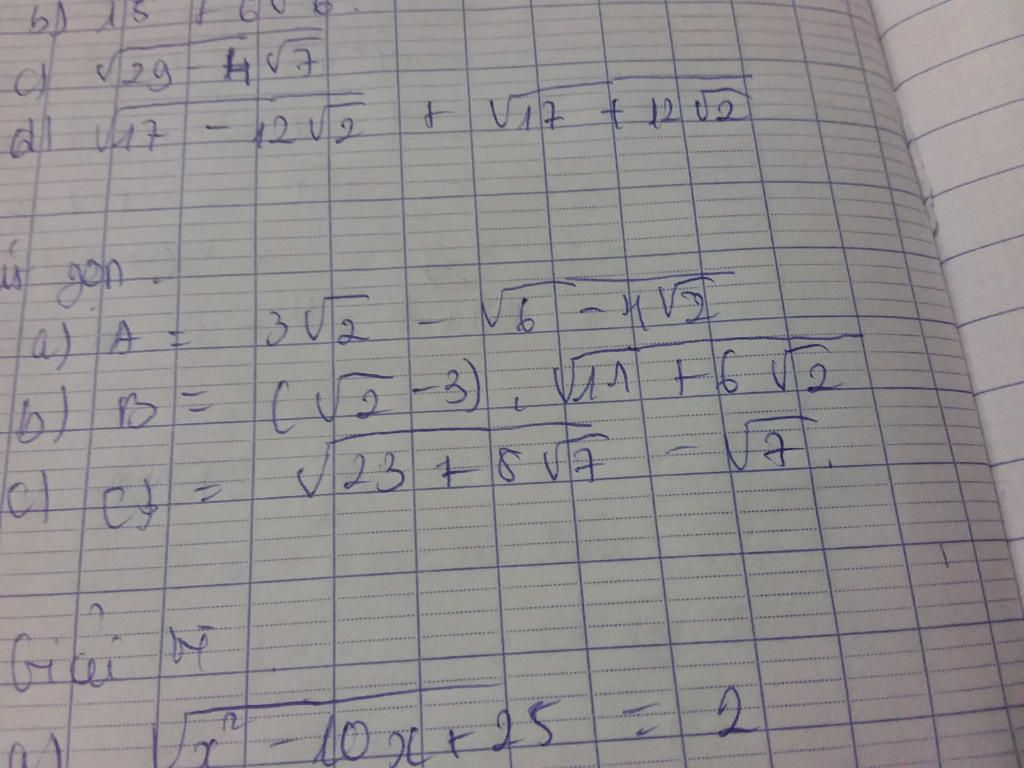 b) 15 + 6√6.
c) √(29 - 4√7)
d) √(17 - 12√2) + √(17 + 12√2)
gọn.
a) A = 3√2 - √(6 - 4√2)
b) B = (√2 - 3) . √(11 + 6√2)
c) C = √(23 + 8√7) - √7.
Giải
a) √(x² - 10x + 25) = 2